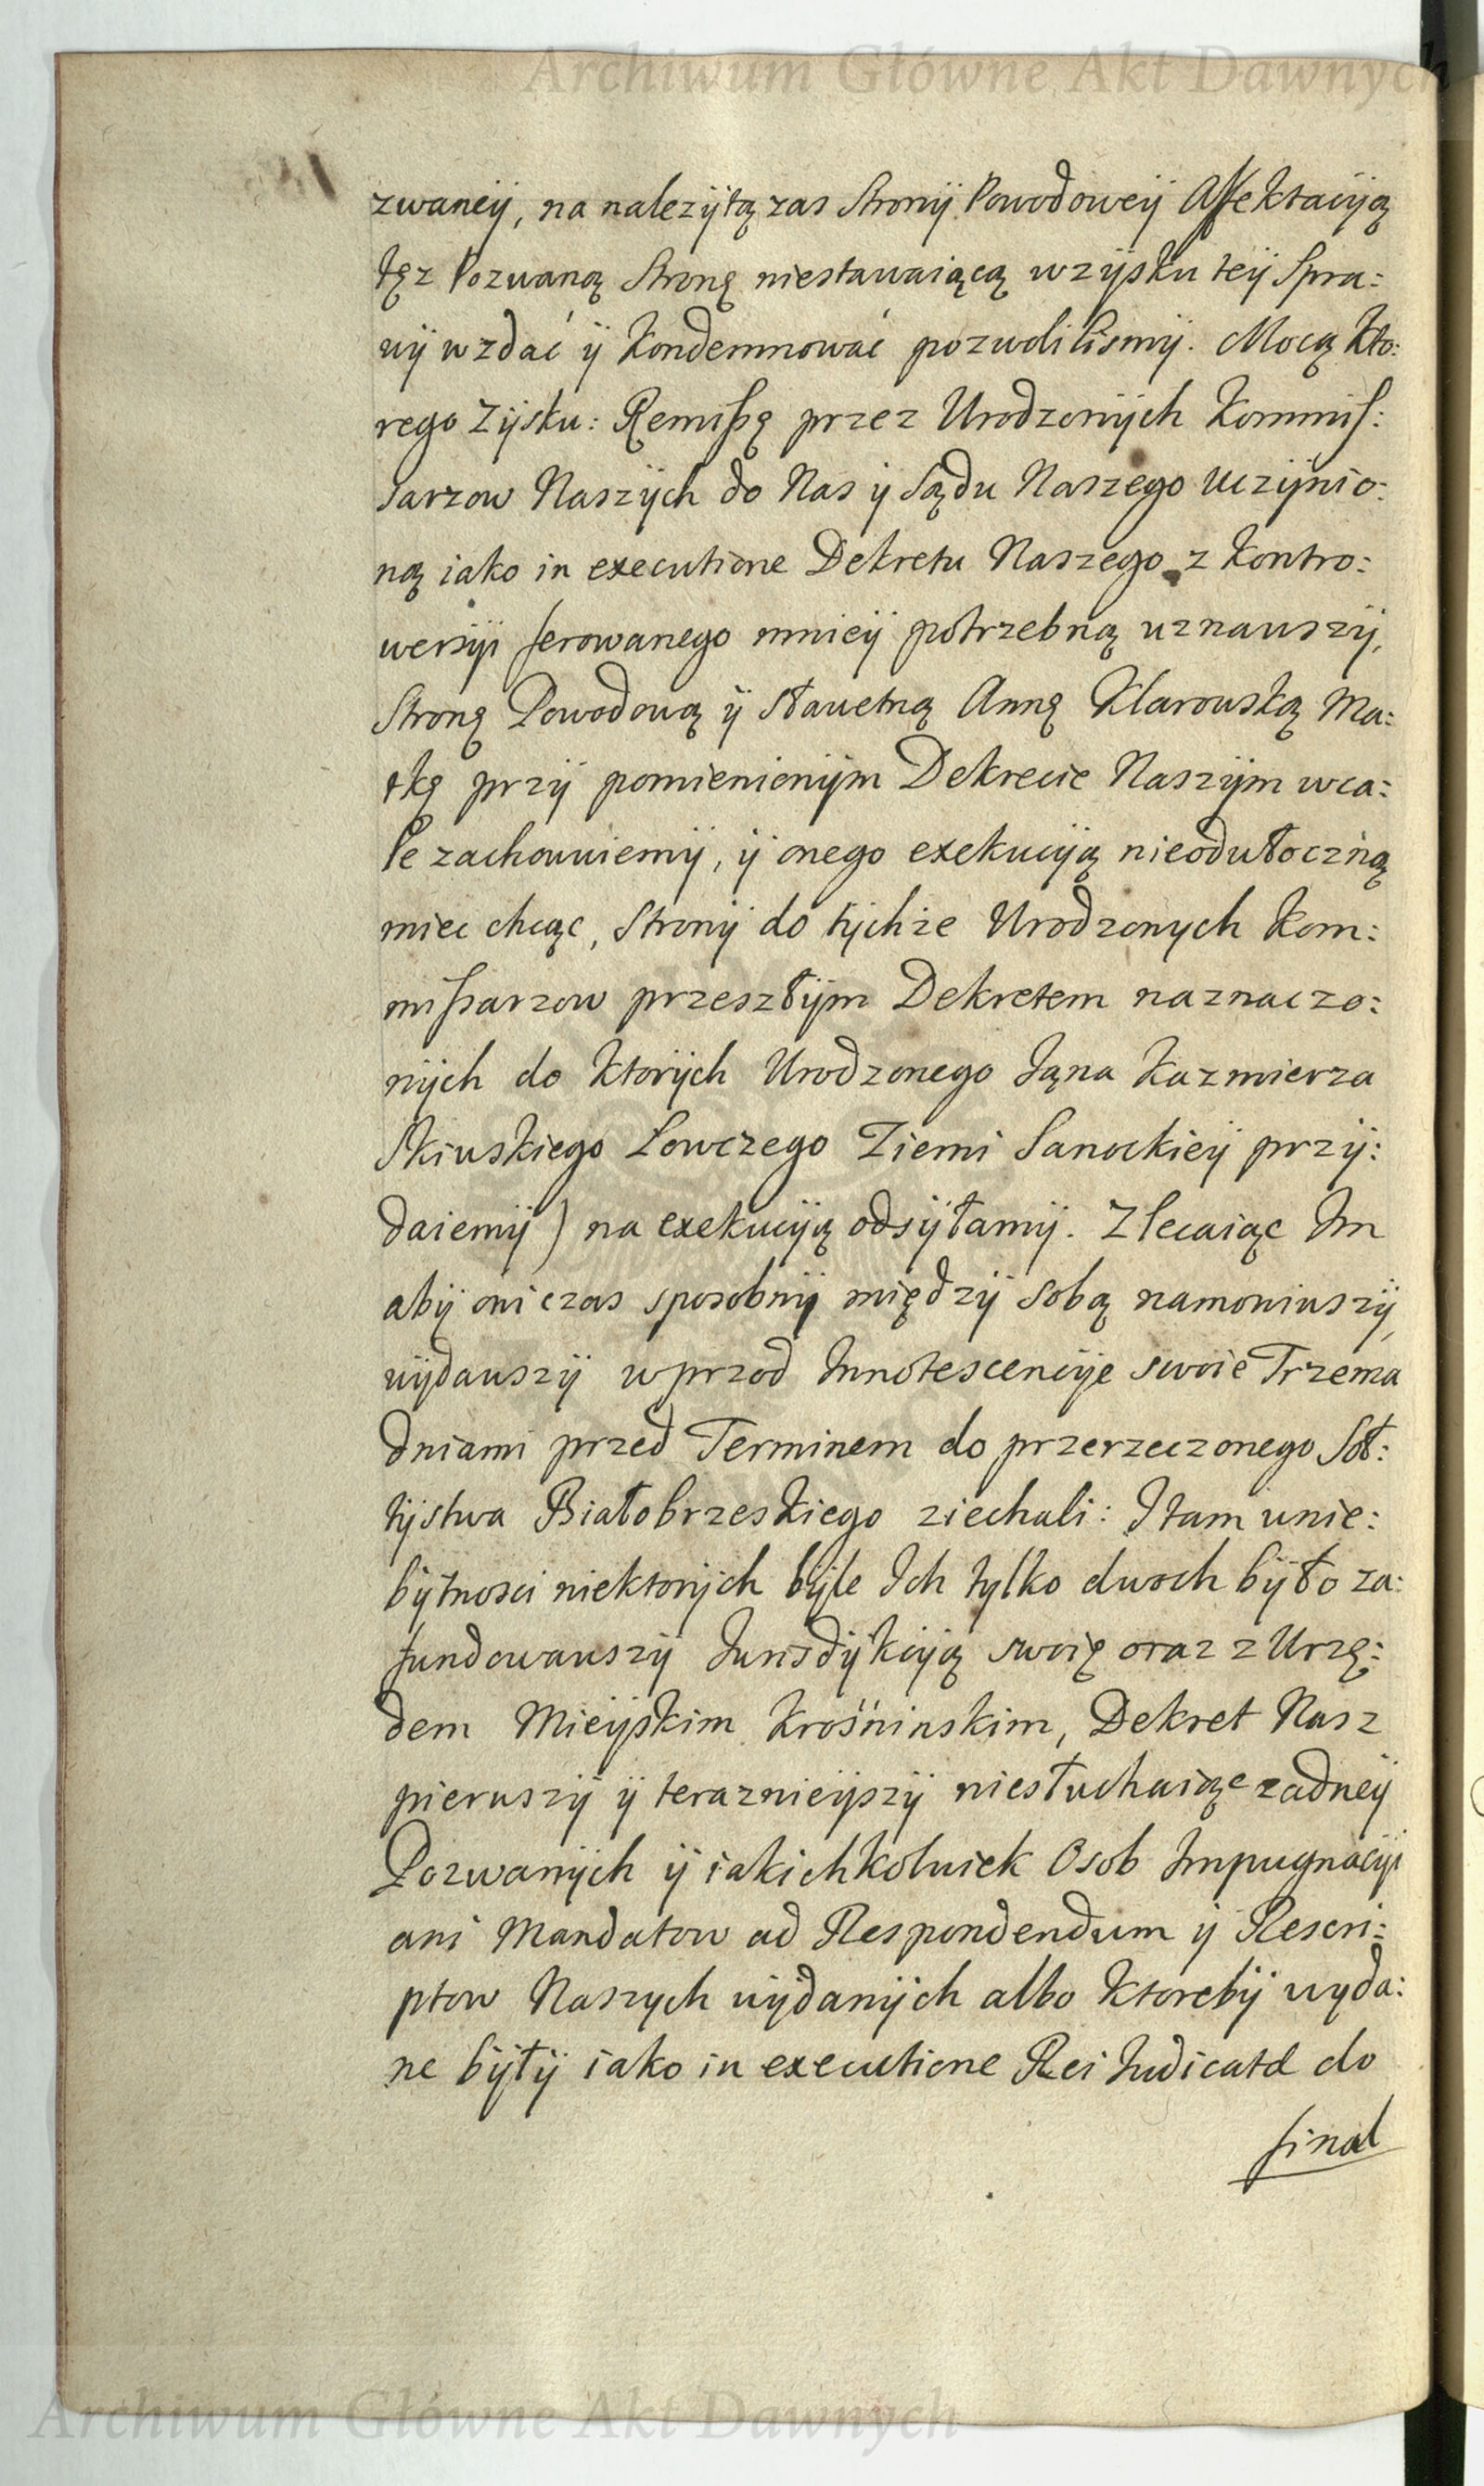 Archiwum Główne Akt Dawnych
zwaneÿ, na należÿtą zas Stronÿ Powodoweÿ Affektacÿą
tęz Pozwaną Stronę niestawaiącą w zÿsku teÿ Spra:
wÿ wzdać ÿ Kondemnować pozwolilismÿ. Mocą Kto:
rego Zÿsku: Remissę przez Urodzonÿch Kommis:
sarzow Naszÿch do Nas ÿ Sądu Naszego uczÿnio:
ną iako in executione Dekretu Naszego z Kontro:
wersÿi ferowanego mnieÿ potrzebną uznawszÿ,
Stronę Powodową ÿ Sławetną Annę Klarowską Ma:
tkę przÿ pomienionÿm Dekrecie Naszÿm wca:
le zachowuiemÿ, ÿ onego exekucÿą nieodwłoczną
miec chcąc, Stronÿ do tÿchże Urodzonych Kom:
missarzow przeszłÿm Dekretem naznaczo:
nÿch do Ktorÿch Urodzonego Jana Kazmierza
Łowczego Ziemi Sanockieÿ przÿ:
daiemÿ) na exekucÿą odsÿłamÿ. Zlecaiąc Im
abÿ oni czas sposobnÿ międzÿ sobą namowiwszÿ,
wÿdawszÿ wprzod Innotescencÿe swoie Trzema
dniami przed Terminem do przerzeczonego Soł:
tÿstwa Białobrzeskiego ziechali: I tam w nie:
bÿtnosci niektorÿch bÿle Ich tylko dwoch bÿło za:
fundowawszÿ Jurisdÿkcÿą swoię oraz z Urzę:
dem Mieÿskim Krośninskim, Dekret Nasz
pierwszÿ ÿ teraznieÿszÿ niesłuchaiąc zadneÿ
Pozwanÿch ÿ iakichkolwiek Osob Impugnacÿi
ani Mandatow ad Respondendum ÿ Rescri:
ptow Naszych wÿdanÿch albo Ktorebÿ wyda:
ne bÿłÿ iako in executione Rei Judicatæ do
final
Archiwum Główne Akt Dawnych